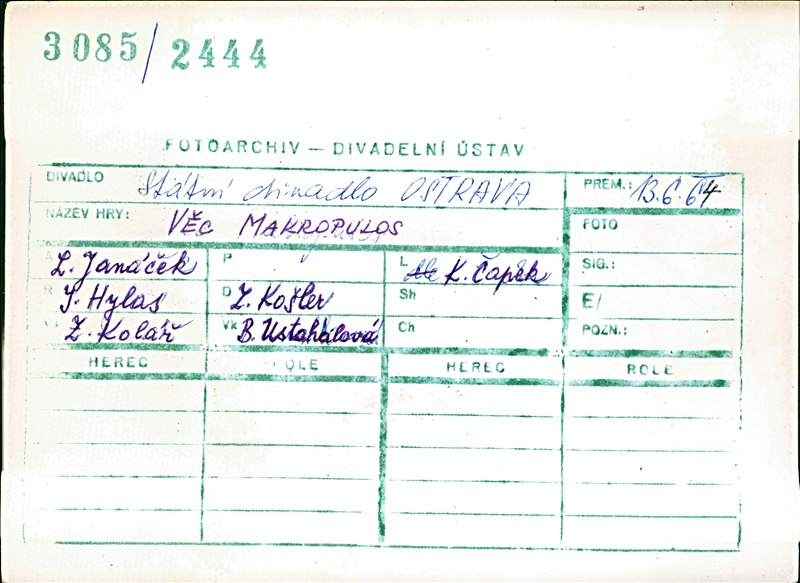 3085/2444
FOTOARCHIV — DIVADELNÍ ÚSTAV
DIVADLO Státní divadlo OSTRAVA PREM.: 13.6.64
NÁZEV HRY: VĚC MAKROPULOS FOTO
A L. Janáček P L dle K. Čapek SIG.:
R I. Hylas D Z. Košler Sh E/
Z. Kolář Vk B. Ustohalová Ch POZN.:
HEREC ROLE HEREC ROLE